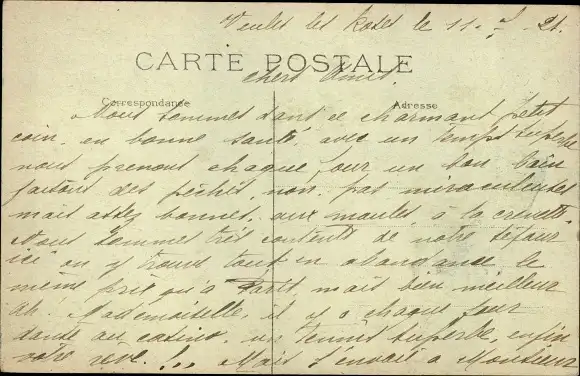 Veules les Roses le 11-7-21.
CARTE POSTALE
Chers Amis.
Correspondance Adresse
Nous sommes dans ce charmant petit
coin, en bonne santé, avec un temps superbe
nous prenons chaque jour un bon bain
faisons des pêches, non pas miraculeuses
mais assez bonnes, aux moules, à la crevette.
Nous sommes très contents de notre séjour
ici on y trouve tout en abondance le
même prix qu'à Paris mais bien meilleur
Ah! Mademoiselle, il y a chaque jour
danse au casino, un tennis superbe, enfin
votre rêve!.. Mais à Monsieur